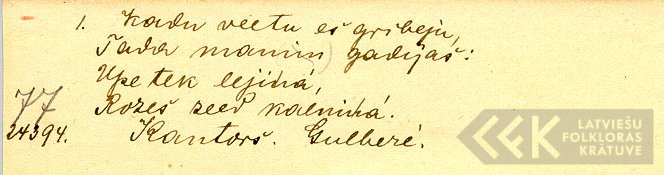 1. Kadu veetu eś gribeju,
Tada manim gadijaś:
Upe tek lejinâ,
Roześ zeed kalninâ.
77
24394. Kantorś. Gulberé.
LATVIEŠU
FOLKLORAS
KRĀTUVE